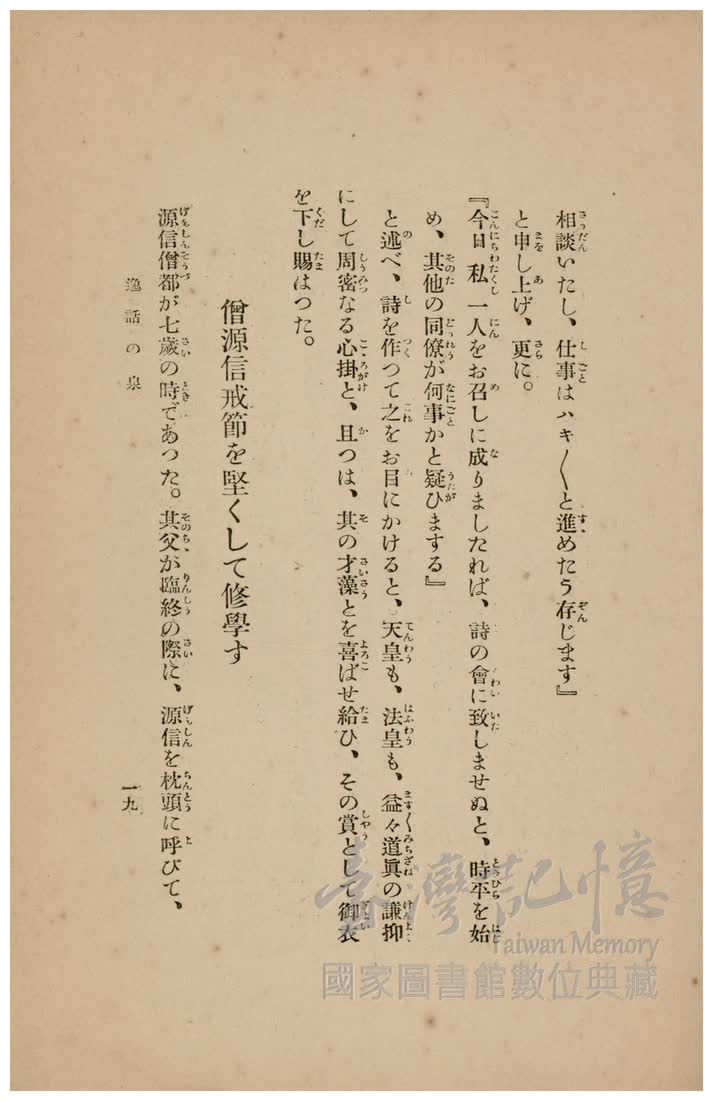 相談いたし、仕事はハキ〱と進めたう存じます』
と申し上げ、更に。
『今日私一人をお召しに成りましたれば、詩の會に致しませぬと、時平を始
め、其他の同僚が何事かと疑ひまする』
と述べ、詩を作つて之をお目にかけると、天皇も、法皇も、益々道眞の謙抑
にして周密なる心掛と、且つは、其の才藻とを喜ばせ給ひ、その賞として御衣
を下し賜はつた。
僧源信戒節を堅くして修學す
源信僧都が七歲の時であつた。其父が臨終の際に、源信を枕頭に呼びて、
逸話の泉
一九
臺灣記憶
Taiwan Memory
國家圖書館數位典藏